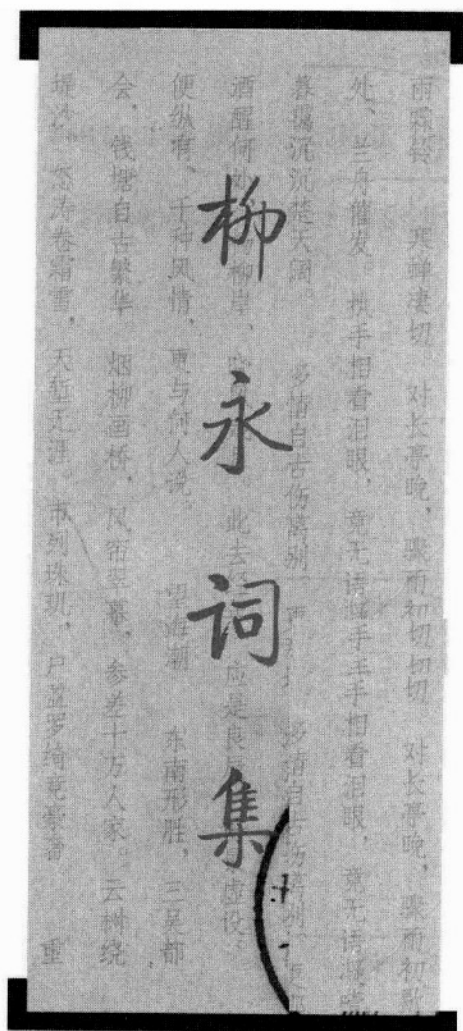 柳永词集
雨霖铃 寒蝉凄切 对长亭晚，骤雨初切切切 对长亭晚，骤雨初歇
处、兰舟催发 执手相看泪眼，竟无语 手 手相看泪眼，竟无语凝噎
暮霭沉沉楚天阔。 多情自古伤离别 多情自古伤离别
酒醒何 柳岸、 此去 应是良 虚设
便纵有、千种风情、更与何人说。 望海潮 东南形胜，三吴都
会，钱塘自古繁华 烟柳画桥，风帘翠幕，参差十万人家。云树绕
堤沙。怒涛卷霜雪，天堑无涯。市列珠玑，户盈罗绮竞豪奢 重